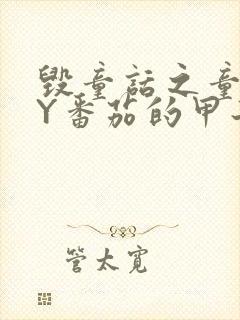 毁童话之童
Y番茄的甲
管太宽